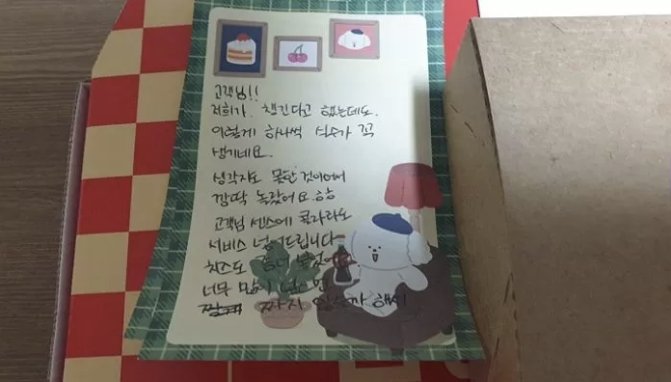 고객님!!
저희가 챙긴다고 했는데도.
이렇게 하나씩 실수가 꼭
생기네요.
생각지도 못한 것이어서
깜짝 놀랐어요. ㅎㅎ
고객님 센스에 콜라라도
서비스 넣어드립니다
치즈도 좀더
너무 많이 넣으면
짤까